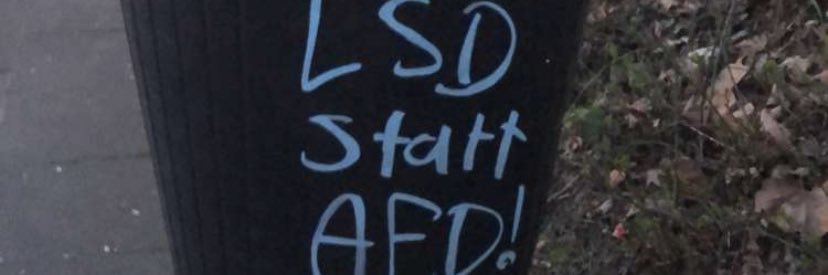 LSD
statt
AFD!